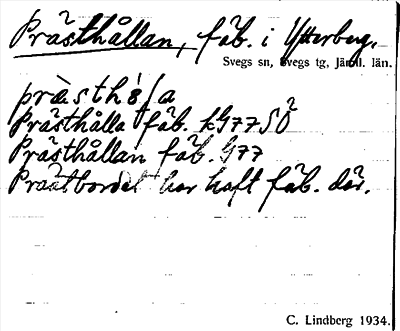 Prästhållan, fäb. i Ytterberg.
Svegs sn, Svegs tg, Jämtl. län.
Prästhålla fäb. kG77SÖ
Prästhållan fäb. G77
Prästbordet har haft fäb. där.
C. Lindberg 1934.